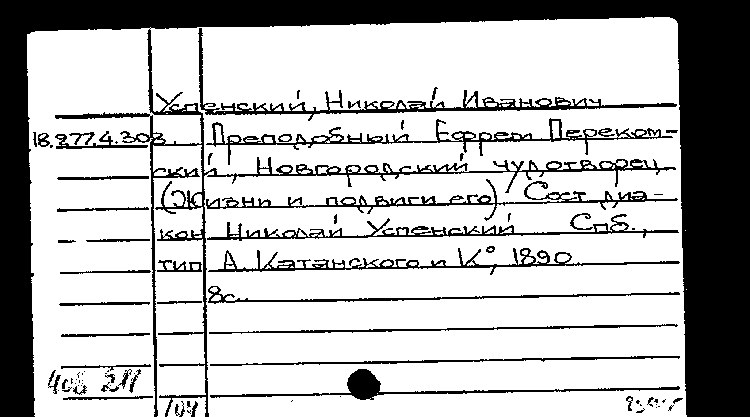 Успенский, Николай Иванович
18.277.4.303. Преподобный Ефрем Переком-
ский, Новгородский чудотворец
(Жизни и подвиги его) Сост диа-
кон Николай Успенский Спб.,
тип А. Катанского и К°, 1890
8с.
408 211
/04